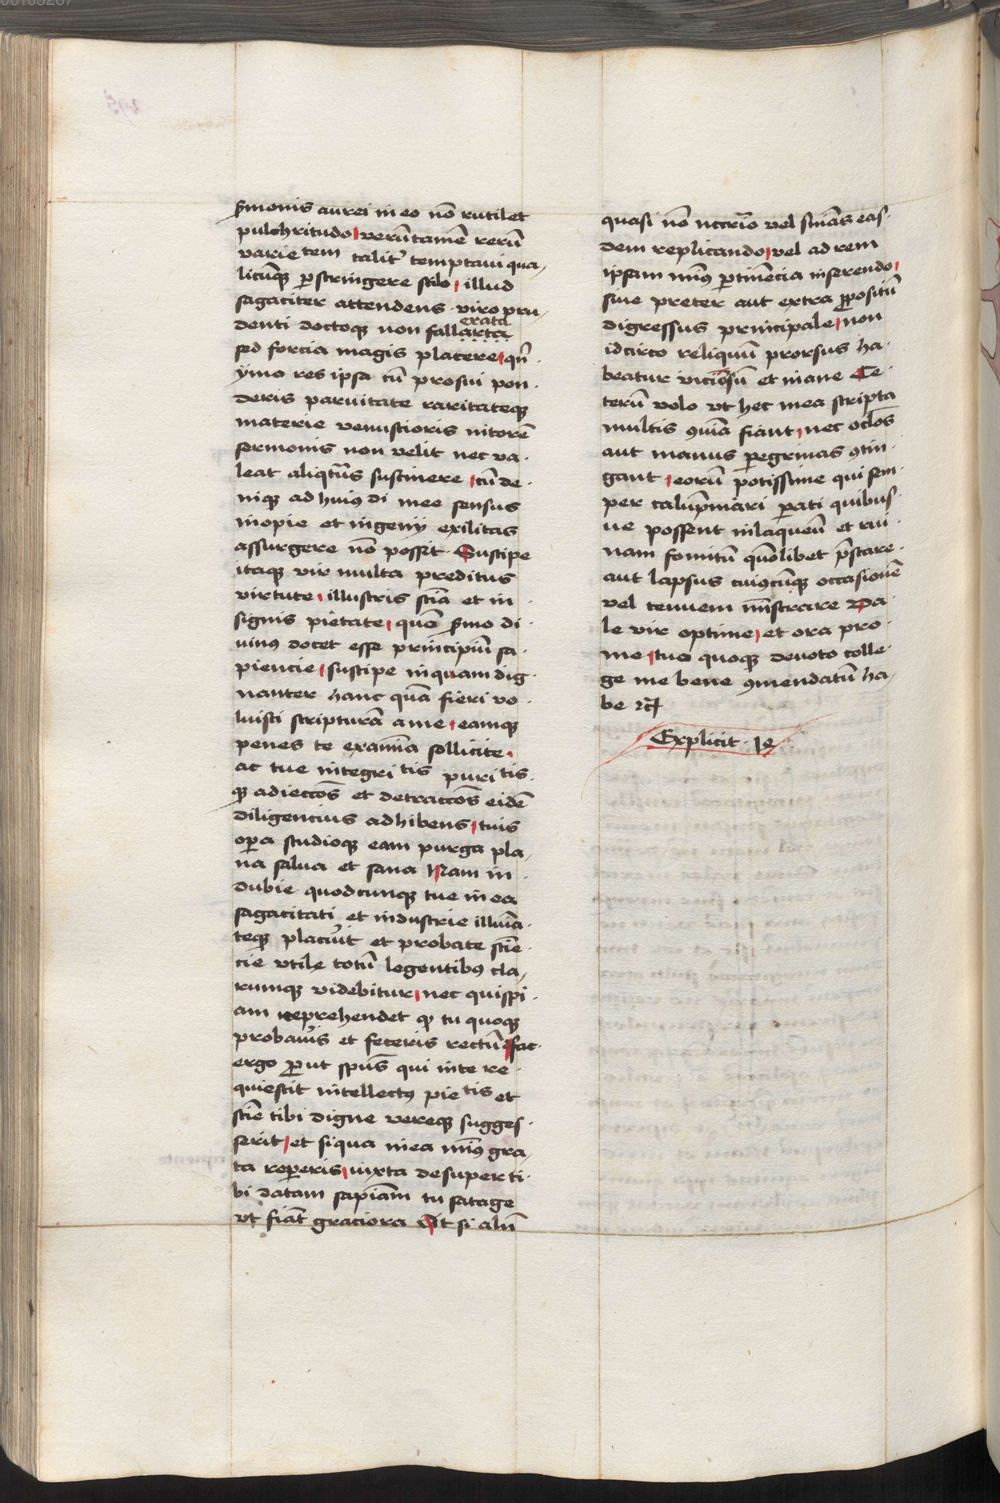 s̄monis aurei in eo nō rutilet
pulchritudo verūtamē rerū
varietem talit᾽ temptaui qua,
licūqꝫ ꝑstringere stilo illud
sagaciter attendens viro pru,
denti doctoqꝫ non fallarta
erata
sed forcia magis placere qn̄
ymo res ipsa cū pro sui pon
deris paruitate raritateqꝫ
materie venustioris nitorē
sermonis non velit nec va
leat aliqtūs sustinere cū de
niqꝫ ad huiꝰ di mee sensus
inopie et ingenij exilitas
assurgere nō possit Suscipe
itaqꝫ vir multa preditus
virtute illustris sciā et in
signis pietate quē s̄mo di
uinꝰ docet esse principiū sa
piencie suscipe inquam dig
nanter hanc quā fieri vo
luisti scripturā a me eamqꝫ
penes te examīa sollicite
ac tue integritis puritis
qꝫ adieccōs et detraccōs eidē
diligencius adhibens tuis
oꝑa studioqꝫ eam purga pla,
na salua et sana Nam in
dubie quodcunqꝫ tue in ea
sagacitati et industrie illuīa
teqꝫ placuīt et probate sciē
cie vtile totū legentibꝰ cla,
rumqꝫ videbitur nec quispi
am reprehendet qꝫ tu quoqꝫ
probauīs et feceris rectū fac
ergo ꝓut spūs qui in te re
quiescit intellectꝰ pietis et
sciē tibi digne vereqꝫ sugges
serit et si qua mea mīꝰ gra,
ta reꝑeris iuxta desuper ti
bi datam sapīam tu satage
vt fiāt graciora At si aliū
quasi nō nccrīo vel sniās eas
dem replicando vel ad rem
ipsam mīꝰ ꝑtinēcia inserendo
siue preter aut extra ꝓpositū
digressus principale non
idcirco reliquū prorsus ha
beatur viciōsū et inane Ce
terū volo vt hec mea scripta
multis ꝯuīa fiant nec oclōs
aut manus ꝑegrinas ꝯtin
gant eorū potissime qui sem
per calūpniari ꝑati quibus
ue possent inlaqueū et rui
nam fomitū quōlibet p̄stare
aut lapsus cuiꝰcūqꝫ occasionē
vel tenuem mīstrare Va
le vir optime et ora pro
me tuo quoqꝫ deuoto colle
ge me bene ꝯmendatū ha,
be ꝛc̄
Explicit